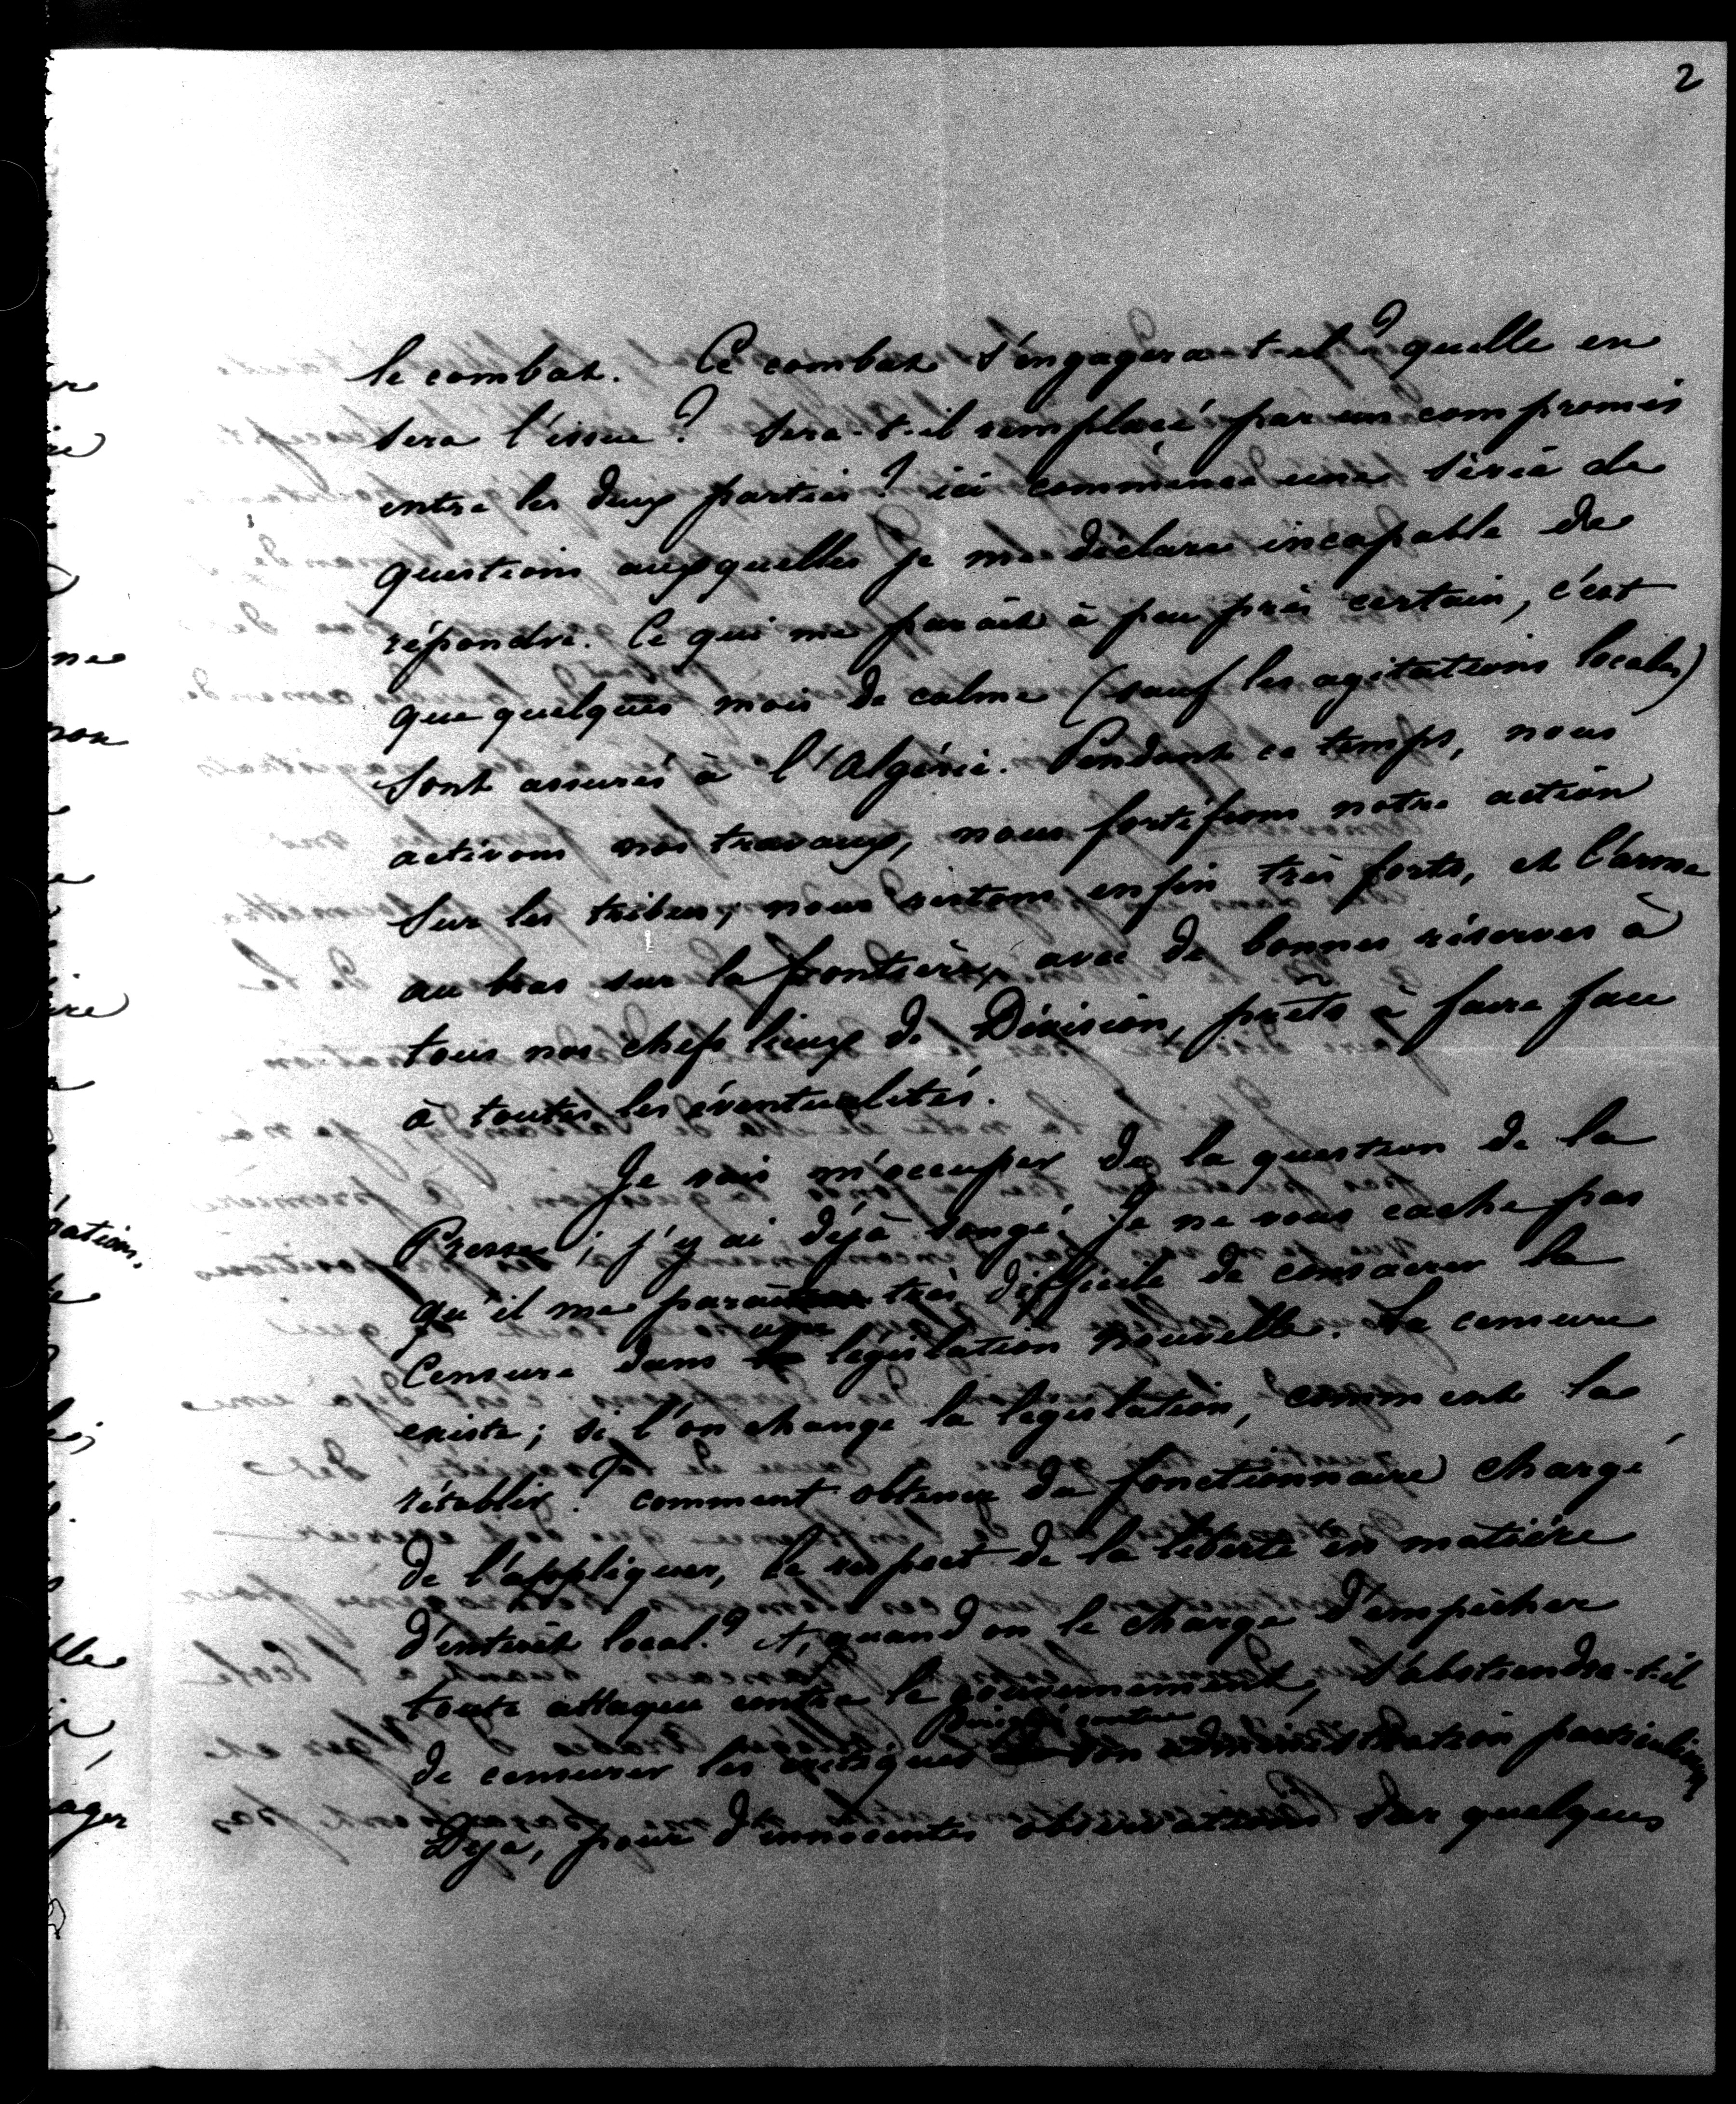 2
le combat. Ce combat s'engagera-t-il ? quelle en
sera l'issue ? sera-t-il remplacé par un compromis
entre les deux parties ? ici commence une série de
questions auxquelles je me déclare incapable de
répondre. Ce qui me paraît à peu près certain, c'est
que quelques mois de calme (sauf les agitations locales)
sont assurés à l'Algérie. Pendant ce temps, nous
activons nos travaux, nous fortifions notre action
sur les tribus, nous restons enfin très forts, et l'arme
au bras sur la frontière, avec de bonnes réserves à
tous nos chefs lieux de Division, prêts à faire face
à toutes les éventualités.
Je vais m'occuper de la question de la
Presse ; j'y ai déjà songé. je ne vous cache pas
qu'il me paraît très difficile de consacrer la
Censure dans une législation nouvelle. La censure
existe ; si l'on change la législation, comment la
rétablir ? comment obtenir du fonctionnaire chargé
de l'appliquer, le respect de la liberté en matière
d'intérêt local ? et, quand on le charge d'empêcher
toute attaque contre le gouvernement, s'abstiendra-t-il
de censurer les critiques contre son administration particulière
Déja, pour d'innocentes observations sur quelques